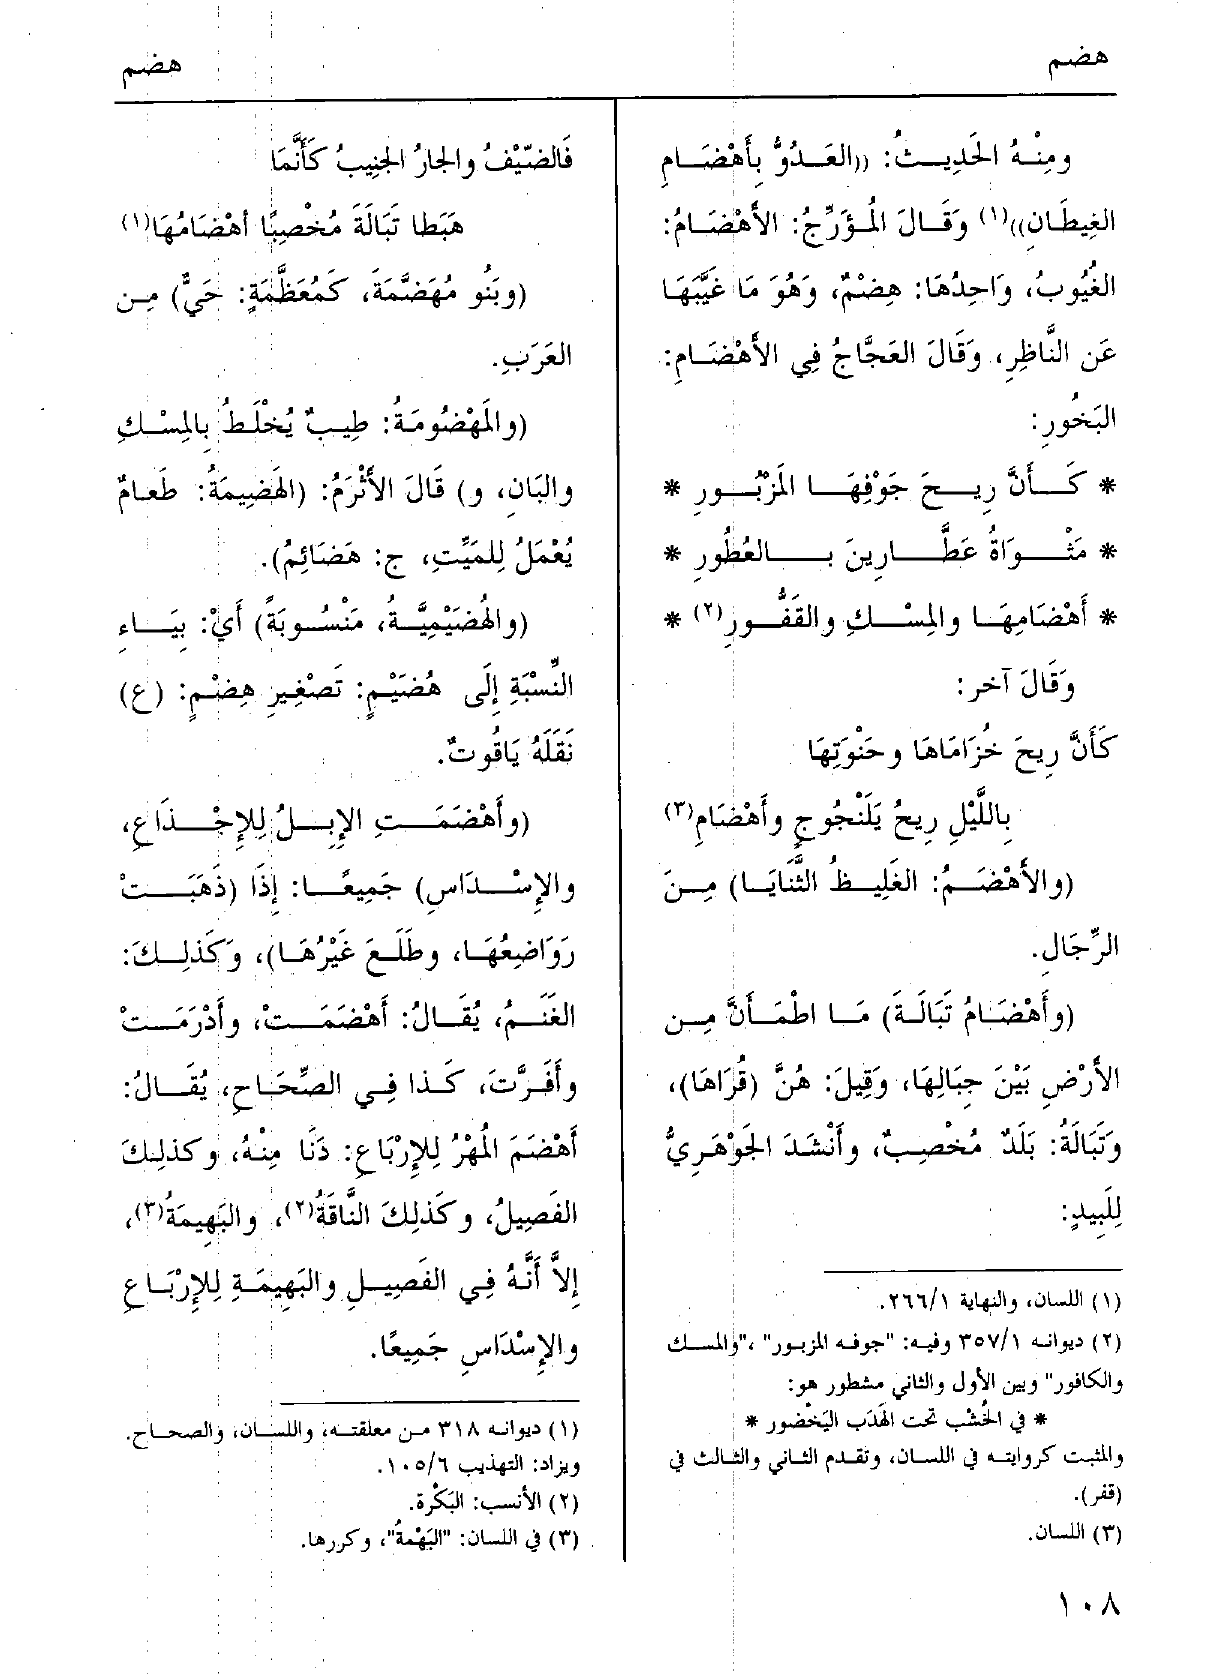 هضم
هضم
ومِنْهُ الحَدِيثُ: ((العَدُوُّ بِأَهْضَامِ
الغِيطَانِ))(١) وَقَالَ المُؤَرِّجُ: الأَهْضَامُ:
الغُيُوبُ، وَاحِدُهَا: هِضْمٌ، وَهُوَ مَا غَيَّبَهَا
عَن النَّاظِرِ، وَقَالَ العَجَّاجُ فِي الأَهْضَامِ:
البَخُورِ:
* كَأَنَّ رِيحَ جَوْفِهَا المَزْبُورِ *
* مَثْوَاةُ عَطَّارِينَ بِالعُطُورِ *
* أَهْضَامِهَا والمِسْكِ والقَفُّورِ(٢) *
وَقَالَ آخر:
كَأَنَّ رِيحَ خُزَامَاهَا وحَنْوَتِهَا
بِاللَّيْلِ رِيحُ يَلَنْجُوجٍ وأَهْضَامِ(٣)
(والأَهْضَمُ: الغَلِيظُ الثَّنَايَا) مِنَ
الرِّجَالِ.
(وأَهْضَامُ تَبَالَةَ) مَا اطْمَأَنَّ مِن
الأَرْضِ بَيْنَ جِبَالِهَا، وَقِيلَ: هُنَّ (قُرَاهَا)،
وَتَبَالَةُ: بَلَدٌ مُخْصِبٌ، وأَنْشَدَ الجَوْهَرِيُّ
لِلَبِيدٍ:
(١) اللسان، والنهاية ٢٦٦/١.
(٢) ديوانه ٣٥٧/١ وفيه: "جوفه المزبور" ،"والمسك
والكافور" وبين الأول والثاني مشطور هو:
* في الخُشْب تحت الهَدَب اليَخْضور *
والمثبت كروايته في اللسان، وتقدم الثاني والثالث في
(قفر).
(٣) اللسان.
فَالضَّيْفُ والجارُ الجَنِيبُ كَأَنَّمَا
هَبَطا تَبَالَةَ مُخْصِبًا أهْضَامُهَا(١)
(وبَنُو مُهَضَّمَةَ، كَمُعَظَّمَةٍ: حَيٌّ) مِن
العَرَبِ.
(والمَهْضُومَةُ: طِيبٌ يُخْلَطُ بِالمِسْكِ
والبَانِ، و) قَالَ الأَثْرَمُ: (الهَضِيمَةُ: طَعَامٌ
يُعْمَلُ لِلمَيِّتِ، ج: هَضَائِمُ).
(والهُضَيْمِيَّةُ، مَنْسُوبَةً) أَيْ: بِيَاءِ
النِّسْبَةِ إِلَى هُضَيْمٍ: تَصْغِيرِ هِضْمٍ: (ع)
نَقَلَهُ يَاقُوتٌ.
(وأَهْضَمَتِ الإِبِلُ لِلإِجْذَاعِ،
والإِسْدَاسِ) جَمِيعًا: إِذَا (ذَهَبَتْ
رَوَاضِعُهَا، وطَلَعَ غَيْرُهَا)، وَكَذلِكَ:
الغَنَمُ، يُقَالُ: أَهْضَمَتْ، وأَدْرَمَتْ
وأَفَرَّتَ، كَذا فِي الصِّحَاحِ، يُقَالُ:
أَهْضَمَ المُهْرُ لِلإِرْبَاعِ: دَنَا مِنْهُ، وكذلِكَ
الفَصِيلُ، وكَذلِكَ النَّاقَةُ(٢)، والبَهِيمَةُ(٣)،
إِلاَّ أَنَّهُ فِي الفَصِيلِ والبَهِيمَةِ لِلإِرْبَاعِ
والإِسْدَاسِ جَمِيعًا.
(١) ديوانه ٣١٨ من معلقته، واللسان، والصحاح.
ويزاد: التهذيب ١٠٥/٦.
(٢) الأنسب: البَكْرة.
(٣) في اللسان: "البَهْمةُ"، وكررها.
١٠٨